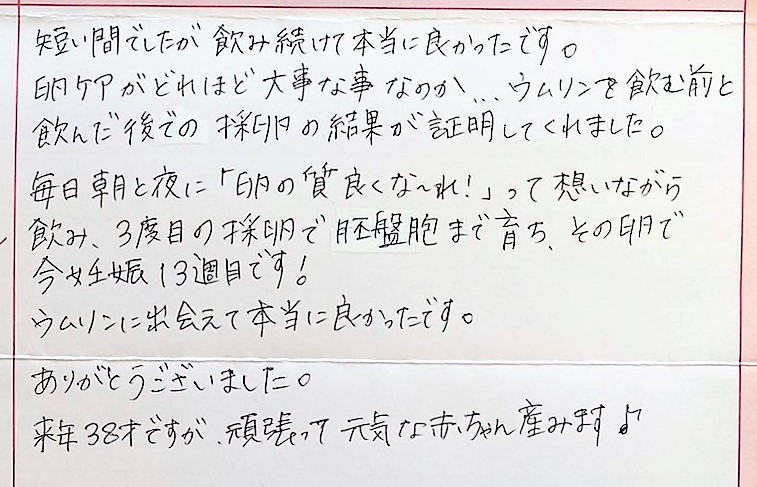 短い間でしたが飲み続けて本当に良かったです。
卵ケアがどれほど大事な事なのか...ウムリンを飲む前と
飲んだ後での採卵の結果が証明してくれました。
毎日朝と夜に「卵の質良くな〜れ!」って想いながら
飲み、3度目の採卵で胚盤胞まで育ち、その卵で
今妊娠13週目です!
ウムリンに出会えて本当に良かったです。
ありがとうございました。
来年38才ですが、頑張って元気な赤ちゃん産みます♪